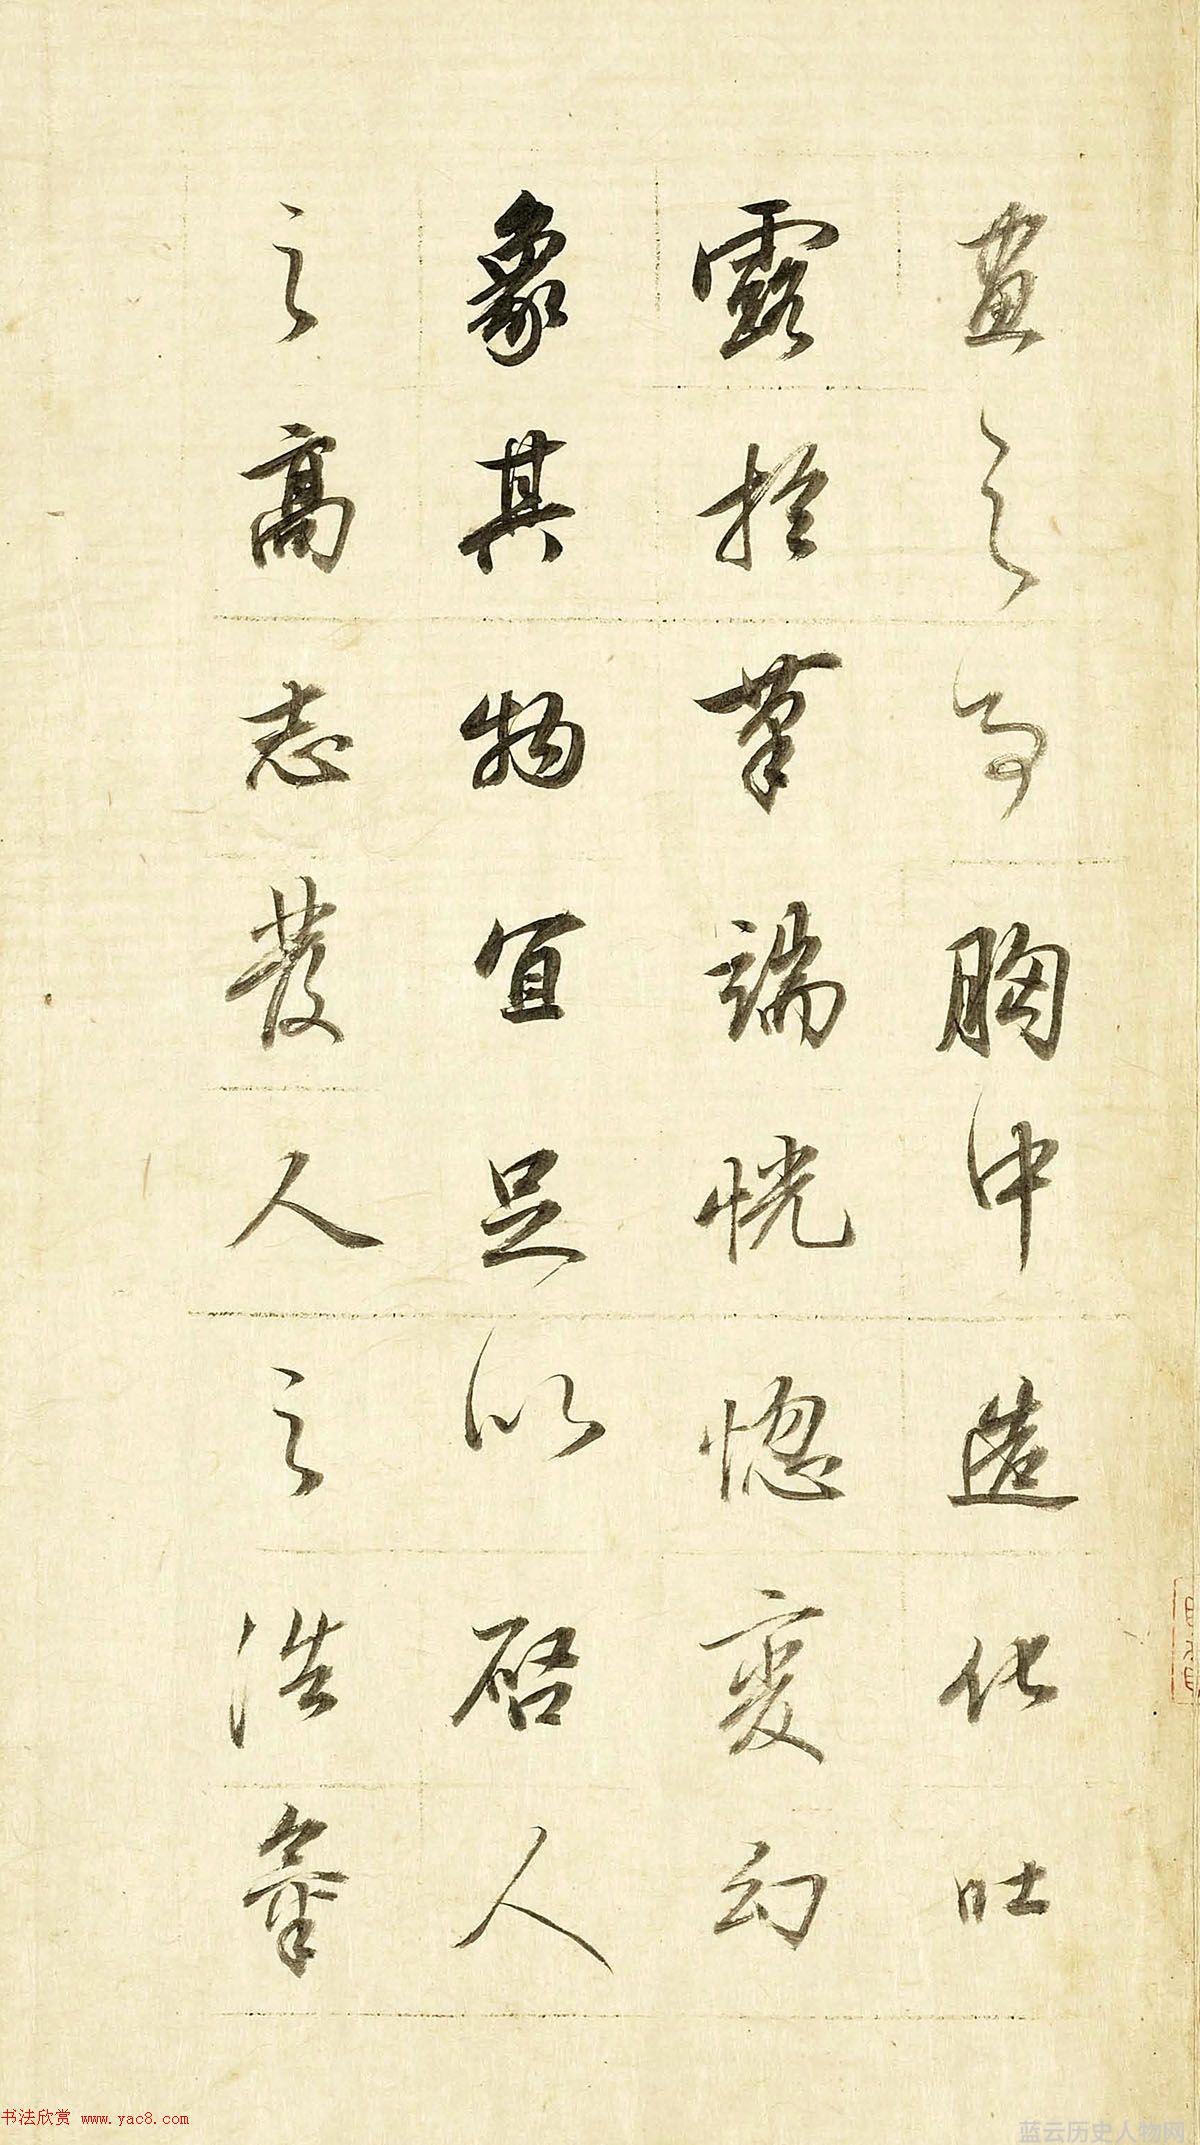 畫之事胸中造化吐
露於筆端恍惚變幻
象其物宜足以啟人
之高志發人之浩氣
书法欣赏 www.yac8.com
蓝云历史人物网